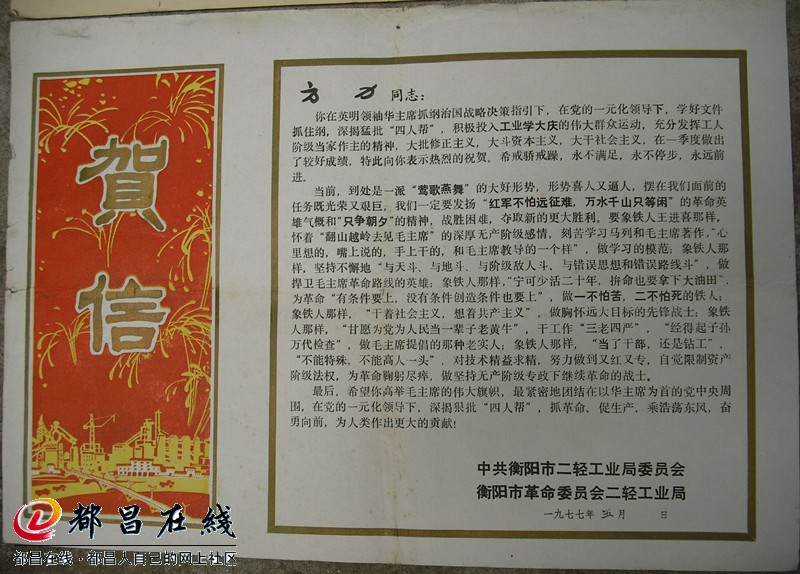 賀信
方 力 同志：
你在英明领袖华主席抓纲治国战略决策指引下，在党的一元化领导下，学好文件
抓住纲，深揭猛批“四人帮”，积极投入工业学大庆的伟大群众运动，充分发挥工人
阶级当家作主的精神，大批修正主义，大斗资本主义，大干社会主义，在一季度做出
了较好成绩，特此向你表示热烈的祝贺，希戒骄戒躁，永不满足，永不停步，永远前
进。
当前，到处是一派“莺歌燕舞”的大好形势，形势喜人又逼人，摆在我们面前的
任务既光荣又艰巨，我们一定要发扬“红军不怕远征难，万水千山只等闲”的革命英
雄气慨和“只争朝夕”的精神，战胜困难，夺取新的更大胜利。要象铁人王进喜那样，
怀着“翻山越岭去见毛主席”的深厚无产阶级感情，刻苦学习马列和毛主席著作，“心
里想的，嘴上说的，手上干的，和毛主席教导的一个样”，做学习的模范；象铁人那
样，坚持不懈地“与天斗、与地斗、与阶级敌人斗、与错误思想和错误路线斗”，做
捍卫毛主席革命路线的英雄；象铁人那样，“宁可少活二十年，拚命也要拿下大油田”，
为革命“有条件要上，没有条件创造条件也要上”，做一不怕苦，二不怕死的铁人；
象铁人那样，“干着社会主义，想着共产主义”，做胸怀远大目标的先锋战士；象铁
人那样，“甘愿为党为人民当一辈子老黄牛”，干工作“三老四严”，“经得起子孙
万代检查”，做毛主席提倡的那种老实人；象铁人那样，“当了干部，还是钻工”，
“不能特殊，不能高人一头”，对技术精益求精，努力做到又红又专，自觉限制资产
阶级法权，为革命鞠躬尽瘁，做坚持无产阶级专政下继续革命的战士。
最后，希望你高举毛主席的伟大旗帜，最紧密地团结在以华主席为首的党中央周
围，在党的一元化领导下，深揭狠批“四人帮”，抓革命，促生产，乘浩荡东风，奋
勇向前，为人类作出更大的贡献！
中共衡阳市二轻工业局委员会
衡阳市革命委员会二轻工业局
一九七七年 五 月 日
都昌在線
都昌在线·都昌人自己的网上社区